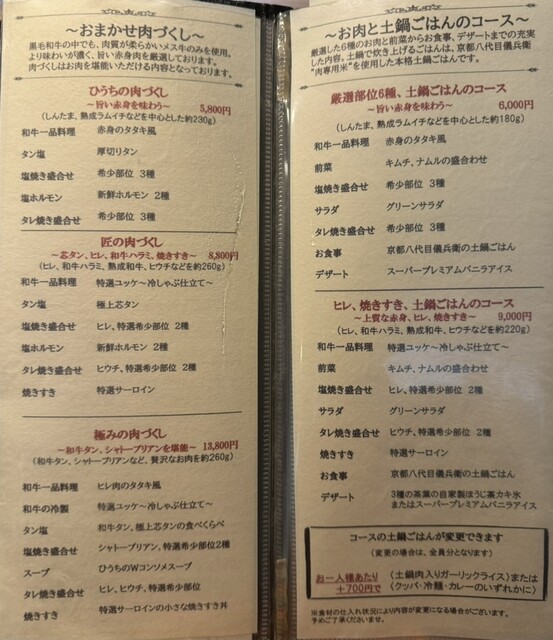 ～おまかせ肉づくし～
黒毛和牛の中でも、肉質が柔らかいメス牛のみを使用。
より味わいが濃く、旨い赤身肉を厳選しております。
肉づくしはお肉を堪能いただける内容となっております。
ひうちの肉づくし
～旨い赤身を味わう～ 5,800円
(しんたま、熟成ラムイチなどを中心とした約230g)
和牛一品料理 赤身のタタキ風
タン塩 厚切りタン
塩焼き盛合せ 希少部位 3種
塩ホルモン 新鮮ホルモン 2種
タレ焼き盛合せ 希少部位 3種
匠の肉づくし
～芯タン、ヒレ、和牛ハラミ、焼きすき～ 8,800円
(ヒレ、和牛ハラミ、熟成和牛、ヒウチなどを約260g)
和牛一品料理 特選ユッケ～冷しゃぶ仕立て～
タン塩 極上芯タン
塩焼き盛合せ ヒレ、特選希少部位 2種
塩ホルモン 新鮮ホルモン 2種
タレ焼き盛合せ ヒウチ、特選希少部位 2種
焼きすき 特選サーロイン
極みの肉づくし
～和牛タン、シャトーブリアンを堪能～ 13,800円
(和牛タン、シャトーブリアンなど、贅沢なお肉を約260g)
和牛一品料理 ヒレ肉のタタキ風
和牛の冷製 特選ユッケ～冷しゃぶ仕立て～
タン塩 和牛タン、極上芯タンの食べくらべ
塩焼き盛合せ シャトーブリアン、特選希少部位2種
スープ ひうちのWコンソメスープ
タレ焼き盛合せ ヒレ、ヒウチ、特選希少部位
焼きすき 特選サーロインの小さな焼きすき丼
～お肉と土鍋ごはんのコース～
厳選した6種のお肉と前菜からお食事、デザートまでの充実
した内容。土鍋で炊き上げるごはんは、京都八代目儀兵衛の
"肉専用米"を使用した本格土鍋ごはんです。
厳選部位6種、土鍋ごはんのコース
～旨い赤身を味わう～ 6,000円
(しんたま、熟成ラムイチなどを中心とした約180g)
和牛一品料理 赤身のタタキ風
前菜 キムチ、ナムルの盛合わせ
塩焼き盛合せ 希少部位 3種
サラダ グリーンサラダ
タレ焼き盛合せ 希少部位 3種
お食事 京都八代目儀兵衛の土鍋ごはん
デザート スーパープレミアムバニラアイス
ヒレ、焼きすき、土鍋ごはんのコース
～上質な赤身、ヒレ、焼きすき～ 9,000円
(ヒレ、和牛ハラミ、熟成和牛、ヒウチなど約220g)
和牛一品料理 特選ユッケ～冷しゃぶ仕立て～
前菜 キムチ、ナムルの盛合わせ
塩焼き盛合せ ヒレ、特選希少部位 2種
サラダ グリーンサラダ
タレ焼き盛合せ ヒウチ、特選希少部位 2種
焼きすき 特選サーロイン
お食事 京都八代目儀兵衛の土鍋ごはん
デザート 3種の茶葉の自家製ほうじ茶カキ氷
またはスーパープレミアムバニラアイス
コースの土鍋ごはんが変更できます
(変更の場合は、全員分となります)
お一人様あたり (土鍋肉入りガーリックライス)または
+700円で (クッパ・冷麺・カレーのいずれかに)
※食材の仕入れ状況により内容が変更になる場合がございます。
予めご了承くださいませ。